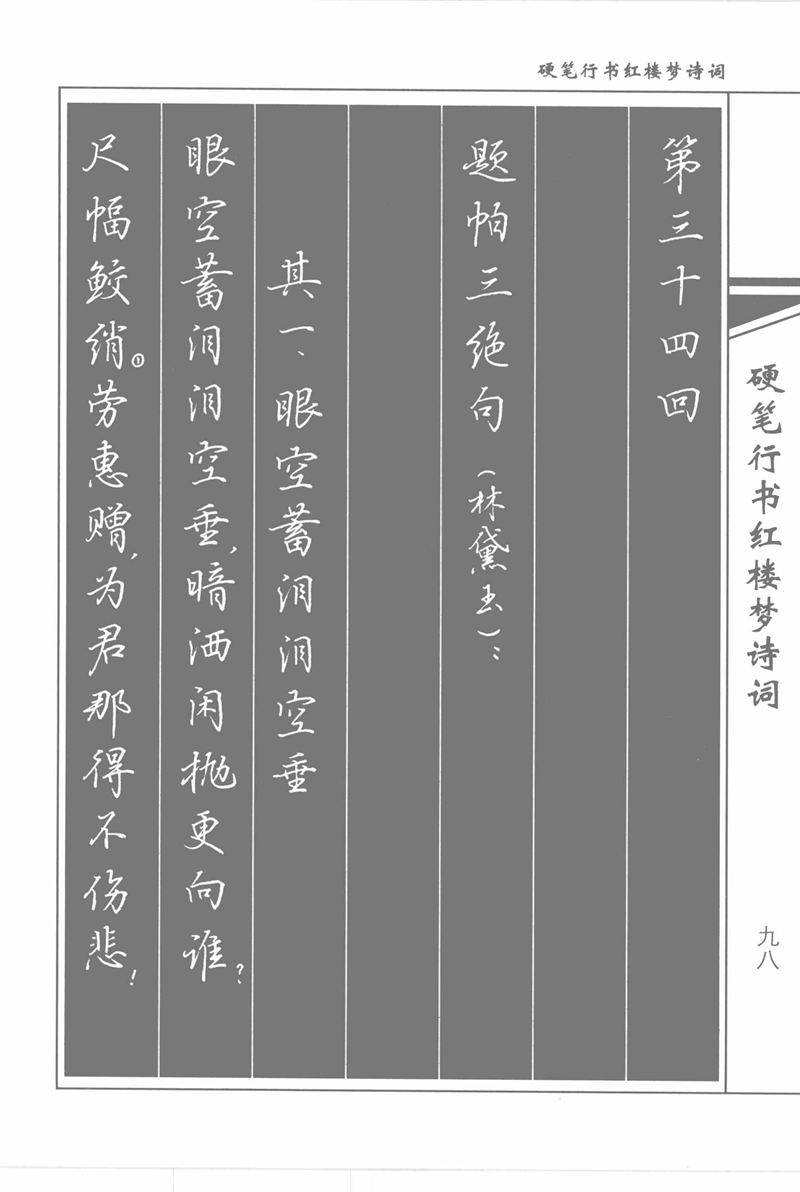 硬笔行书红楼梦诗词
第三十四回
题帕三绝句（林黛玉）：
其一、眼空蓄泪泪空垂
眼空蓄泪泪空垂，暗洒闲抛更向谁？
尺幅鲛绡①劳惠赠，为君那得不伤悲！
硬笔行书红楼梦诗词
九八